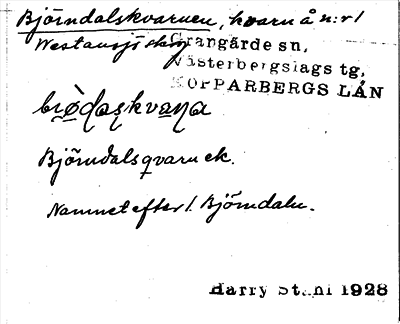 Björndalskvarnen, kvarn å n:r 1
Westansjö skog
Grangärde sn,
Västerbergslags tg,
KOPPARBERGS LÄN
Björndalsqvarn ek.
Namnet efter 1. Björndaln.
Harry Ståhl 1928